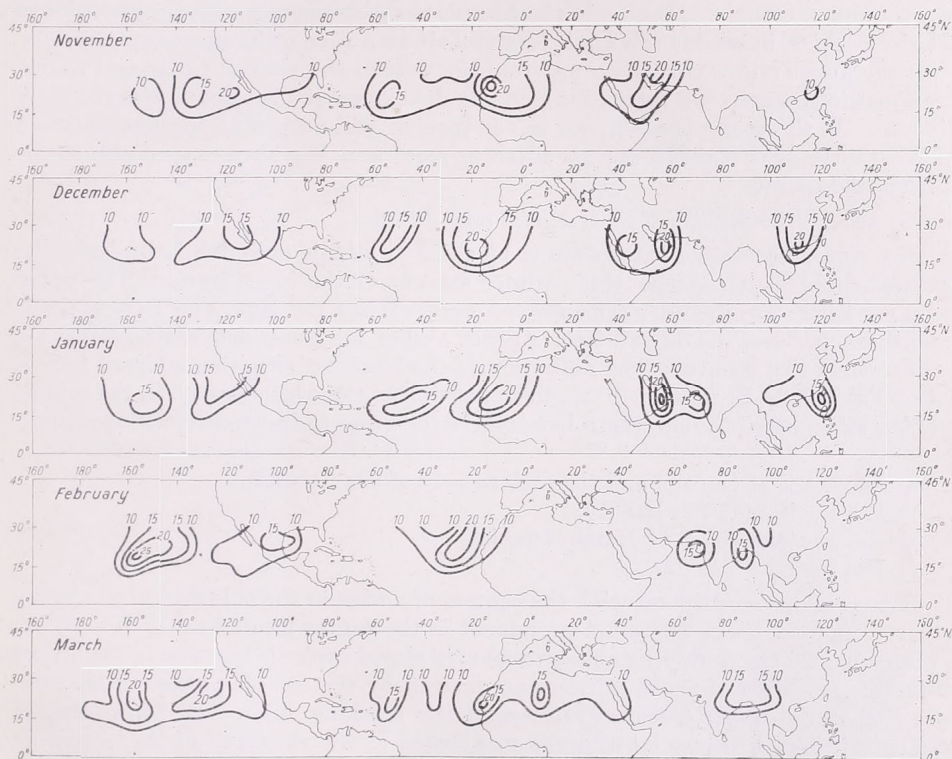 160° 180° 160° 140° 120° 100° 80° 60° 40° 20° 0° 20° 40° 60° 80° 100° 120° 140° 160°
45° 45°N
November
10 10 15 10 10 10 15 10 10 15 20 15 10
30° 30°
15 20 15 20 10
15° 15°
0° 0°
160° 180° 160° 140° 120° 100° 80° 60° 40° 20° 0° 20° 40° 60° 80° 100° 120° 140° 160°
45° 45°N
December
10 10 10 15 15 10 10 15 10 10 15 15 10 10 10 10 15 15 10
30° 30°
20 15 20 20
15° 15°
0° 0°
160° 180° 160° 140° 120° 100° 80° 60° 40° 20° 0° 20° 40° 60° 80° 100° 120° 140° 160°
45° 45°N
January
10 10 10 15 15 10 10 10 15 15 10 10 15 10 10 10 10
30° 30°
15 15 20 20 15 15
15° 15°
0° 0°
160° 180° 160° 140° 120° 100° 80° 60° 40° 20° 0° 20° 40° 60° 80° 100° 120° 140° 160°
45° 45°N
February
10 15 15 10 10 10 10 10 20 15 10 10 10 10
30° 30°
20 25 15 15 15
15° 15°
0° 0°
160° 180° 160° 140° 120° 100° 80° 60° 40° 20° 0° 20° 40° 60° 80° 100° 120° 140° 160°
45° 45°N
March
10 15 15 10 15 15 10 10 10 10 10 10 15 10 10 15 15 10
30° 30°
20 20 15 15 20
15° 15°
0° 0°